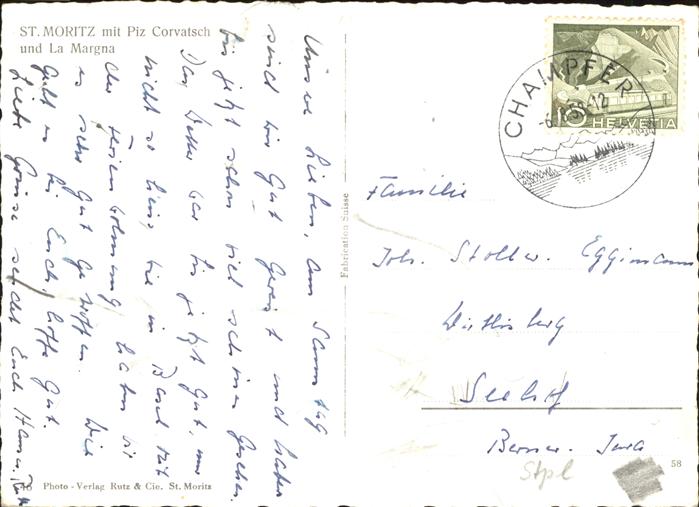 ST. MORITZ mit Piz Corvatsch
und La Margna
Unsere Lieben, am Samstag
sind wir gut gereist und haben
bis jetzt schon viel schönes gesehen.
Das Wetter war bis jetzt gut, nur
nicht so heiss wie in Basel. Mit
der Ferienwohnung haben wir
es sehr gut getroffen. Wie
geht es bei Euch, hoffe gut.
Liebe Grüsse sendet Euch
Photo - Verlag Rutz & Cie. St. Moritz
Fabrication Suisse
CHAMPFER
HELVETIA
Familie
Joh. Stoller-Eggimann
Seehof
Berner Jura
Stpl
58